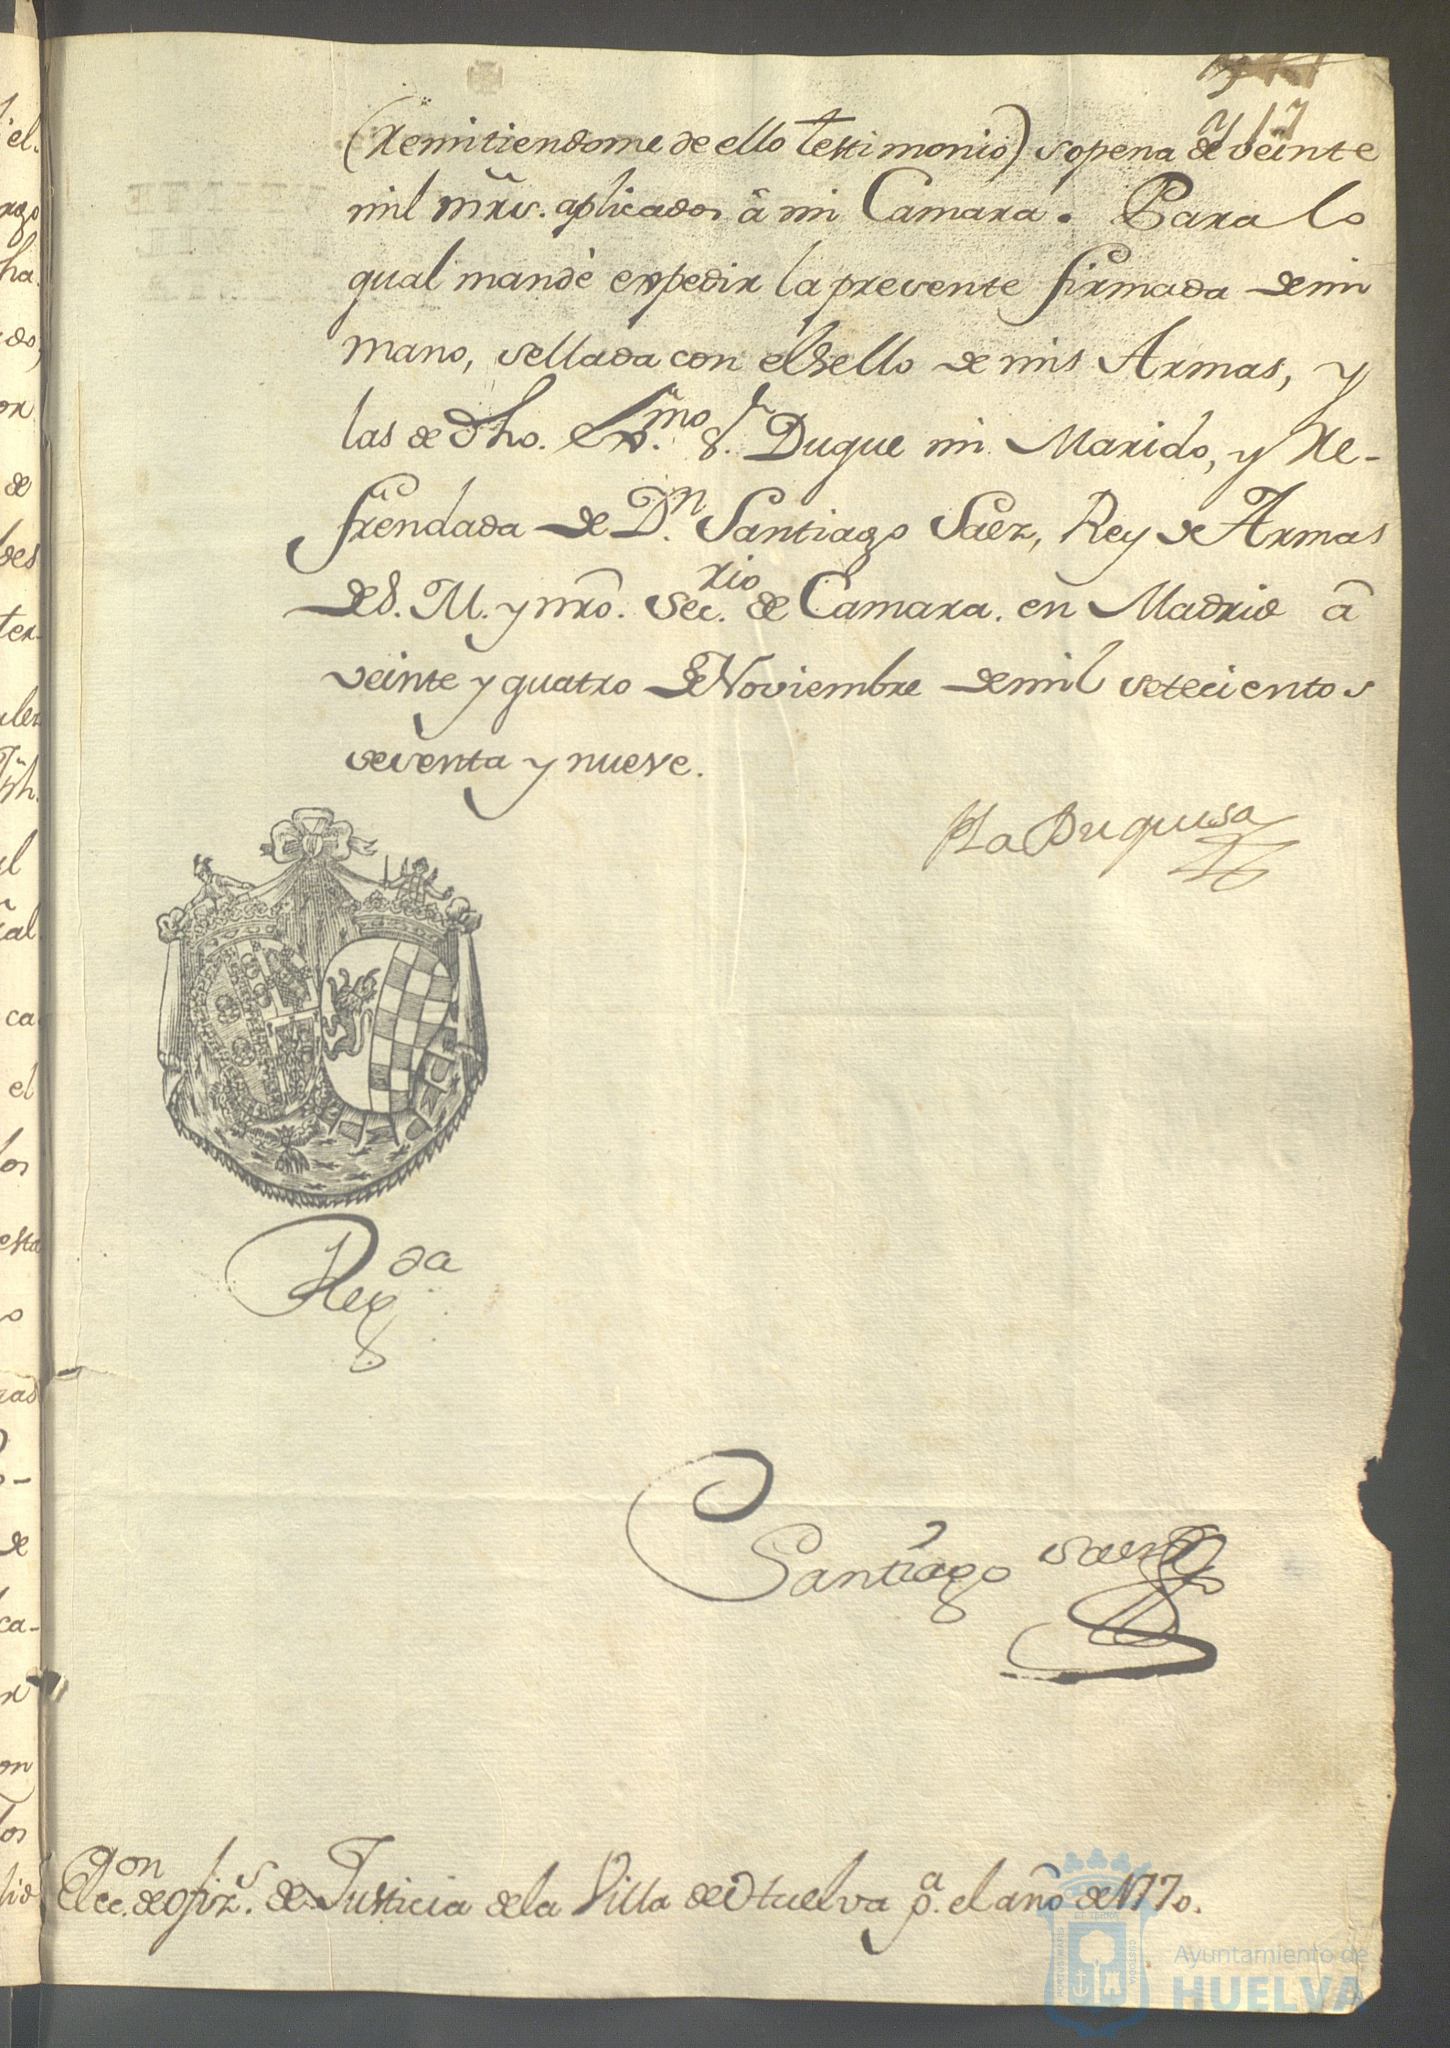 17
(Remitiendome de ello testimonio) sopena de veinte
mil mrs. aplicados â mi Camara. Para lo
qual mandè expedir la presente firmada de mi
mano, sellada con el Sello de mis Armas, y
las de dho. Exmo. Sr. Duque mi Marido, y Re-
frendada de Dn. Santiago Saez, Rey de Armas
de S. M. y nro. Secrio. de Camara. en Madrid â
veinte y quatro de Noviembre de mil setecientos
sesenta y nueve.
La Duquesa
Regda
Santiago Saenz
Eleccon. de ofizs. de Justicia de la Villa de Huelva pa. el año de 1770.
Ayuntamiento de
HUELVA